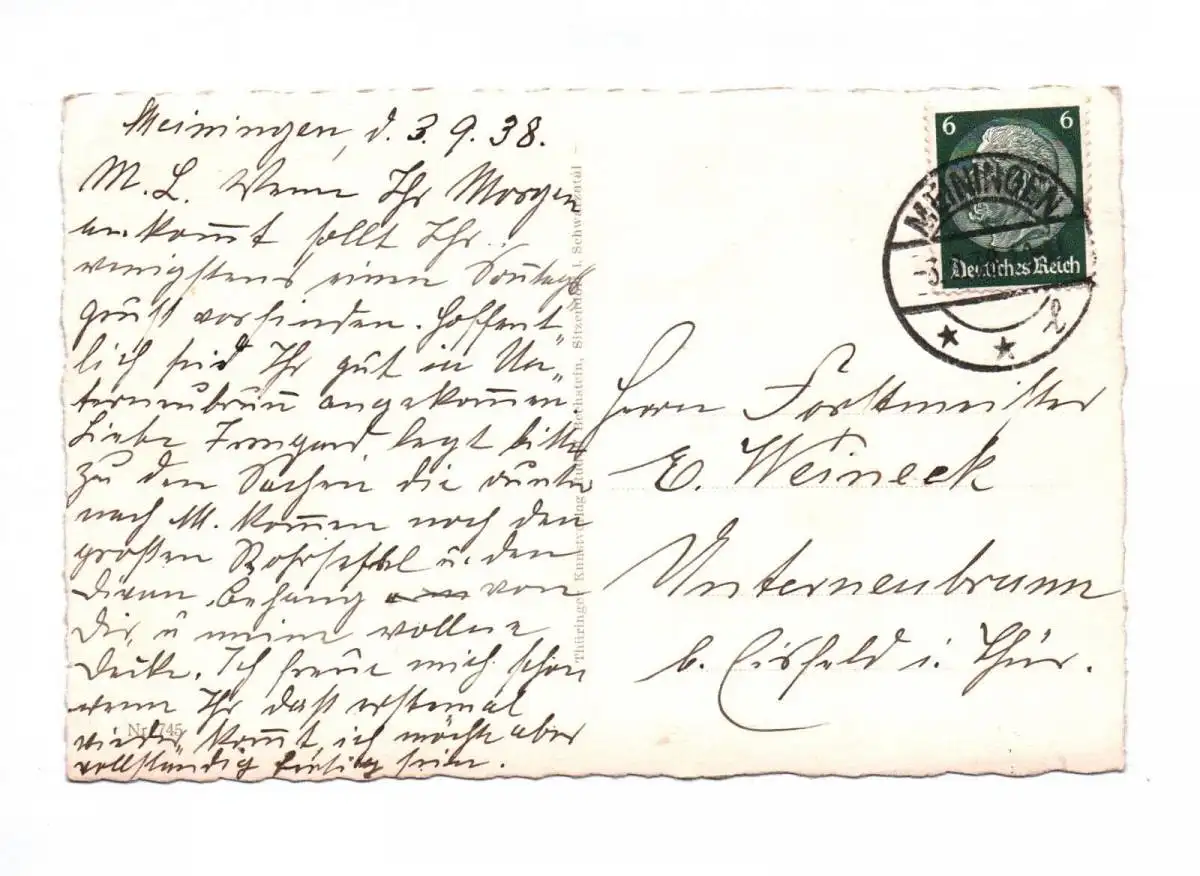 Meiningen, d. 3. 9. 38.
M. L. Wenn Ihr Morgen
ankom̅t sollt Ihr
wenigstens einen Son̅tags
gruß vorfinden. Hoffent-
lich seid Ihr gut in Un-
terneubrun̅ angekom̅en.
Liebe Irmgard legt bitte
zu den Sachen die
nach M. kom̅en noch den
großen Rohrsessel u. den
Divan behang von
Dir u meine wollne
Decke. Ich freue mich schon
wenn Ihr das erstemal
wieder kom̅t, ich möchte aber
vollständig fertig sein.
Nr. 745
Thüringer Kunstverlag Rudolf Bechstein, Sitzendorf i. Schwarzatal
6 6
Deutsches Reich
MEININGEN
Herrn Forstmeister
E. Weineck
Unterneubrunn
b. Eisfeld i. Thür.